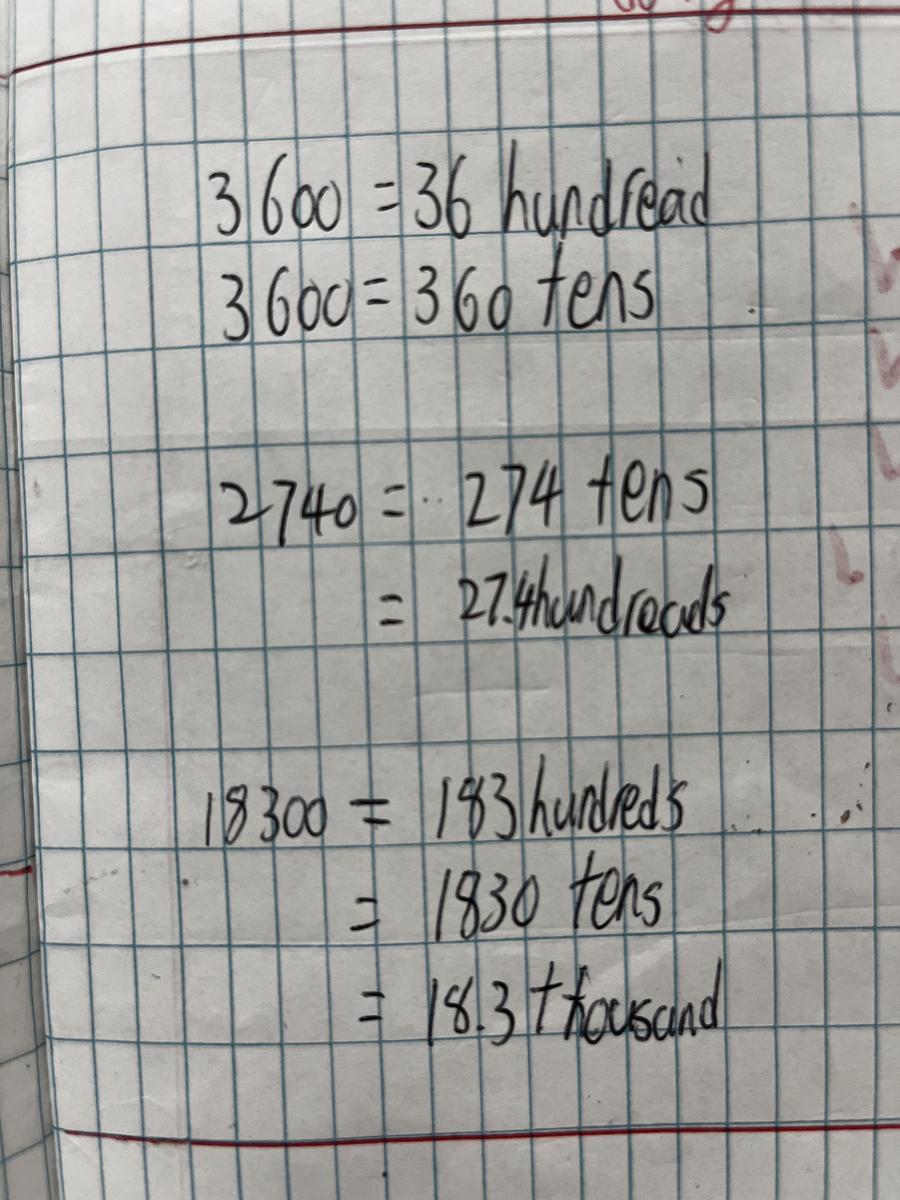 3600 = 36 hundread
3600 = 360 tens
2740 = 274 tens
= 27.4 hundreads
18300 = 183 hundreds
= 1830 tens
= 18.3 thousand